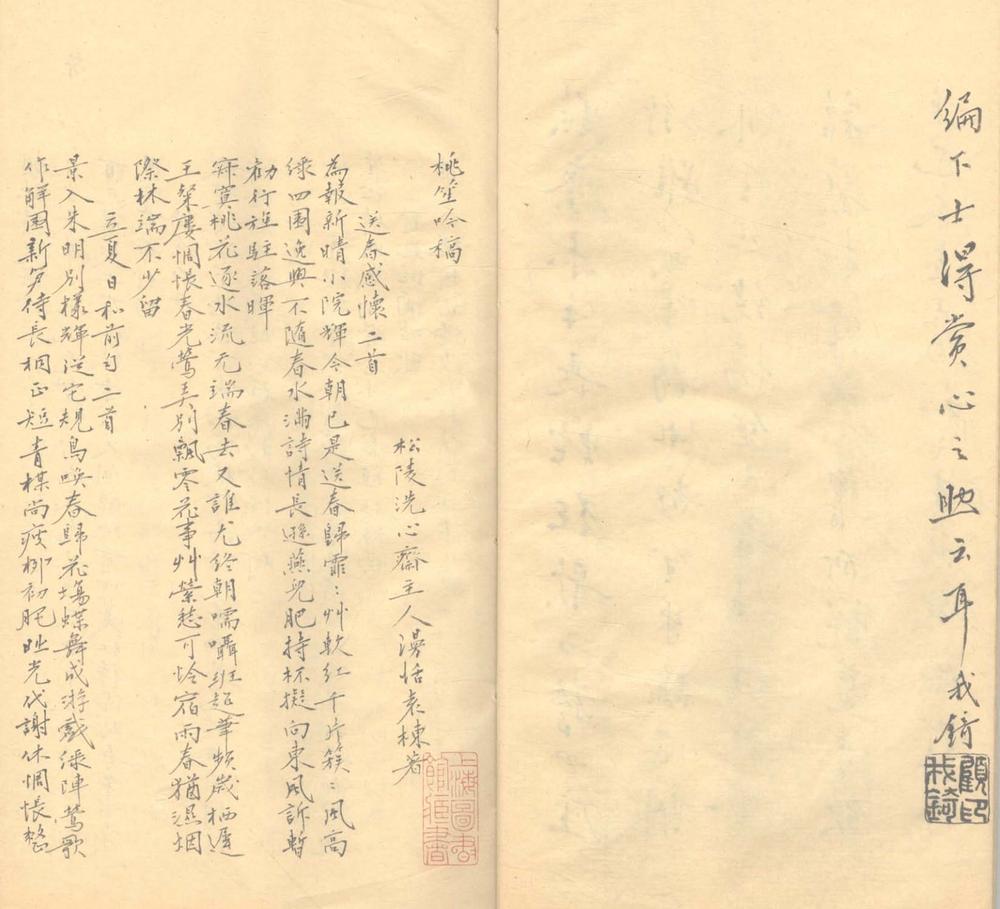 編下士得賞心之助云耳 我錡
顧我錡印
桃笙吟稿
松陵洗心齋主人漫恬袁棟著
送春感懷二首
為報新晴小院輝今朝已是送春歸霏〻艸軟紅千片簇〻風高
綠四圍逸興不隨春水滿詩情長遜燕兒肥持杯擬向東風訴暫
勸行旌駐落暉
寂寞桃花逐水流无端春去又誰尤終朝嚅囁班超筆頻歲栖遲
王粲廔惆悵春光鶯弄別飄零花事艸縈愁可憐宿雨春猶濕烟
際林端不少留
立夏日和前韵二首
景入朱明別樣輝從它規鳥喚春歸花塲蝶舞成游戲綠陣鶯歌
作解圍新笋侍長桐正短青楳尚瘦柳初肥 光代謝休惆悵整
上海圖書館藏書